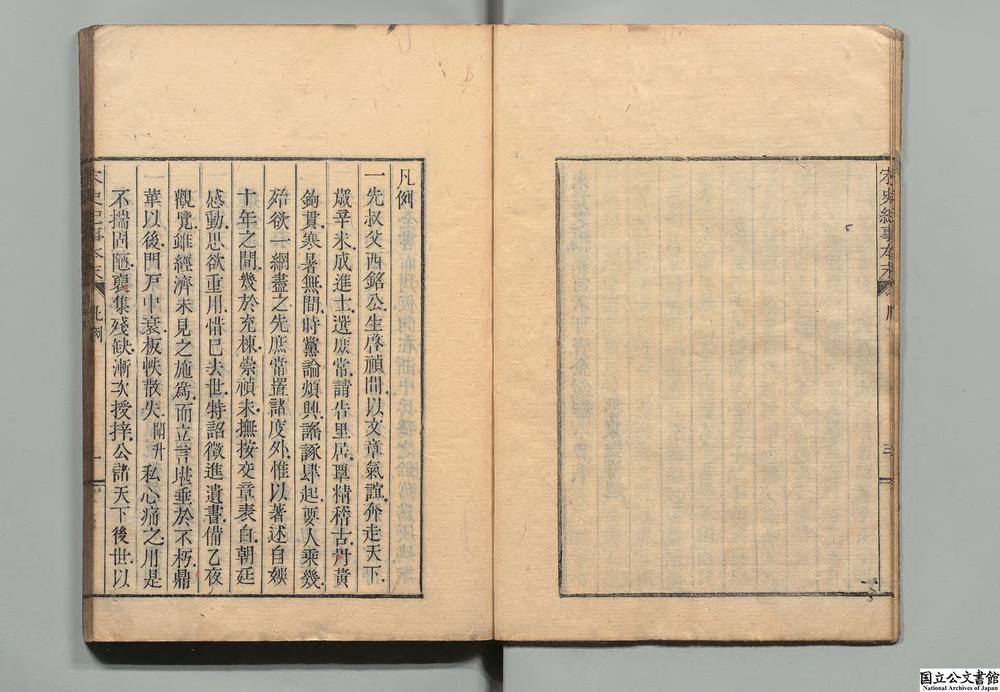 宋史紀事本末
三
凡例
一先叔父西銘公生啓禎間以文章氣誼奔走天下
歲辛未成進士選庶常請告里居覃精稽古丹黃
鉤貫寒暑無間時黨論煩興謠諑肆起要人乘幾
殆欲一網盡之先庶常置諸度外惟以著述自娛
十年之間幾於充棟崇禎末撫按交章表自朝廷
感動思欲重用惜已去世特詔徵進遺書備乙夜
觀覽雖經濟未見之施爲而立言堪垂於不朽鼎
華以後門戶中衰板帙散失 私心痛之用是
不揣固陋裒集殘缺漸次授梓公諸天下後世以
宋史紀事本末
凡例
一
国立公文書館
National Archives of Japan